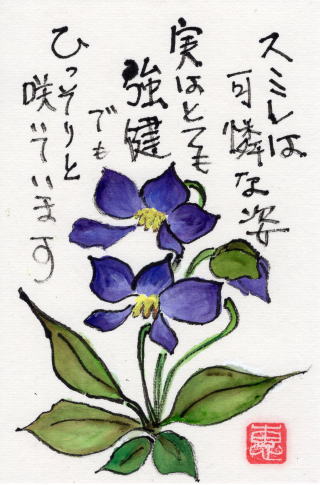 スミレは
可憐な姿
実はとても
強健
でも
ひっそりと
咲いています